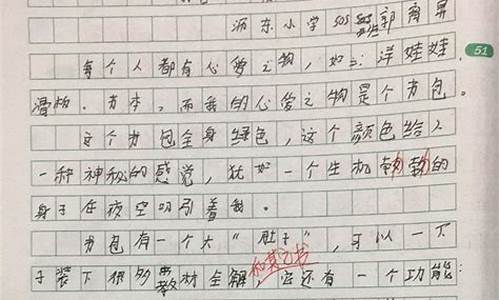 沥东小学505班郭育昇
每个人都有心爱之物,如:洋娃娃、
51
滑板、书本,而我的心爱之物是个书包。
这个书包全身绿色,这个颜色给人
一种神秘的感觉,犹如一个生机勃勃的
身子在夜空吸引着我。
书包有一个大“肚子”,可以一下
子装下很多教材全解和其它书它还有一个功能